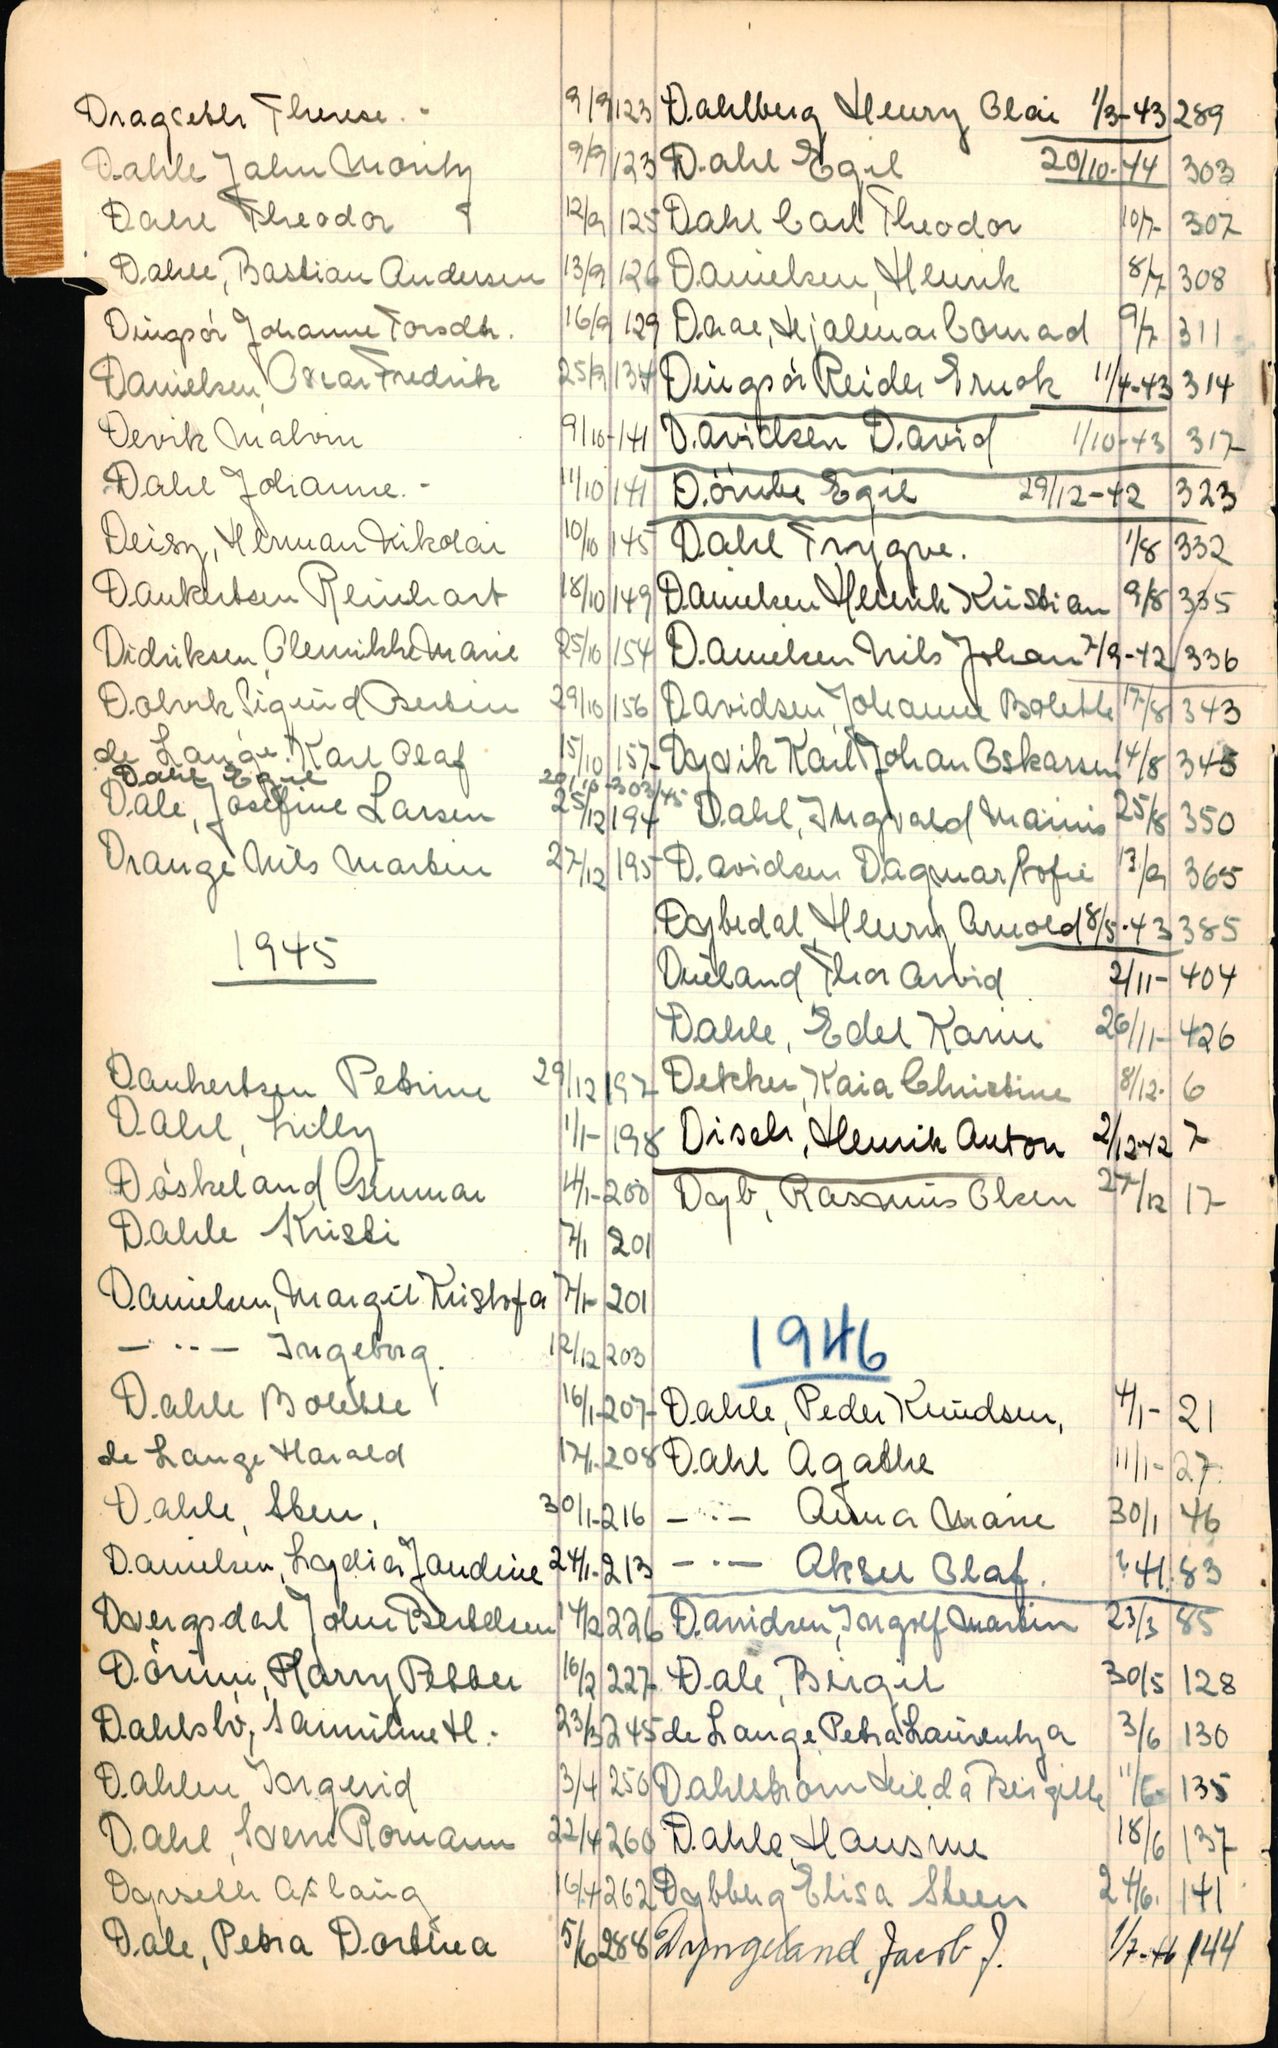 Dragseth Therese. - 9/9 123
Dahle Jahn Moritz 9/9 123
Dahl Theodor 12/9 125
Dahle, Bastian Andersen 13/9 126
Dingsör Johanne Torsdtr. 16/9 129
Danielsen, Oscar Fredrik 25/9 134
Devik Malvin 9/10-141
Dahl Johanne. - 11/10 141
Herman Nikolai 10/10 145
Dankertsen Reinhart 18/10 149
Didriksen, Marie 25/10 154
Dalvik Sigurd Bertin 29/10 156
de Lange. Karl Olaf 15/10 157
Dahl Egil 20/10-303/45
Dale, Josefine Larsen 25/12 194
Drange Nils Martin 27/12 195
1945
Dankertsen Petrine 29/12 197
Dahl, Lilly 1/1- 198
Döskeland Gunnar 4/1-200
Dahle Kristi 7/1 201
Danielsen, Margit Kristofa 7/1-201
— ·· — Ingeborg. 12/12 203
Dahle Bolette 16/1-207
de Lange Harald 17/1-208
Dahle, Sten, 30/1-216
Danielsen, Lydia Jandine 24/1-213
Dvergsdal John Bertelsen 14/2 226
Harry Petter 16/2 227
H. 23/3 245
Dahlen Ingerid 3/4 250
Dahl, Romann 22/4 260
Dyrseth Aslaug 16/4 262
Dale, Petra Dortea 5/6 288
Dahlberg Henry Olai 1/3-43 289
Dahl Egil 20/10-44 303
Dahl Carl Theodor 10/7 307
Danielsen, Henrik 8/7 308
Daae, Hjalmar Conrad 9/7 311
Dingsör Reider Enok 11/4-43 314
Davidsen David 1/10-43 317
Egil 29/12-42 323
Dahl Trygve. 1/8 332
Danielsen Henrik Kristian 9/8 335
Danielsen Nils Johan 7/9-42 336
Davidsen, Johanne Bolette 17/8 343
Dyvik Karl Johan Oskarsen 14/8 345
Dahl, Ingvald Marius 25/8 350
Davidsen Dagmar Sofie 13/9 365
Dybedal, Henry Arnold 8/5-43 385
Thor Arvid 2/11- 404
Dahle, Edel Karin 26/11-426
Dekker, Kaia Christine 8/12. 6
Disch, Henrik Anton 2/12-42 7
Dyb, Rasmus Olsen 27/12 17
1946
Dahle, Peder Knudsen, 4/1- 21
Dahl Agathe 11/1-27
— ·· — Anna Marie 30/1 46
— ·· — Aksel Olaf. 83
Davidsen, Ingolf Martin 23/3 85
Dale, Birgit 30/5 128
de Lange, Petra Laurentza 3/6 130
Dahlstrøm Hilda Bergitte 11/6- 135
Dahle, Hansine 18/6 137
Dybberg Elisa Steen 24/6. 141
Dyngeland, Jacob J. 1/7-46 144